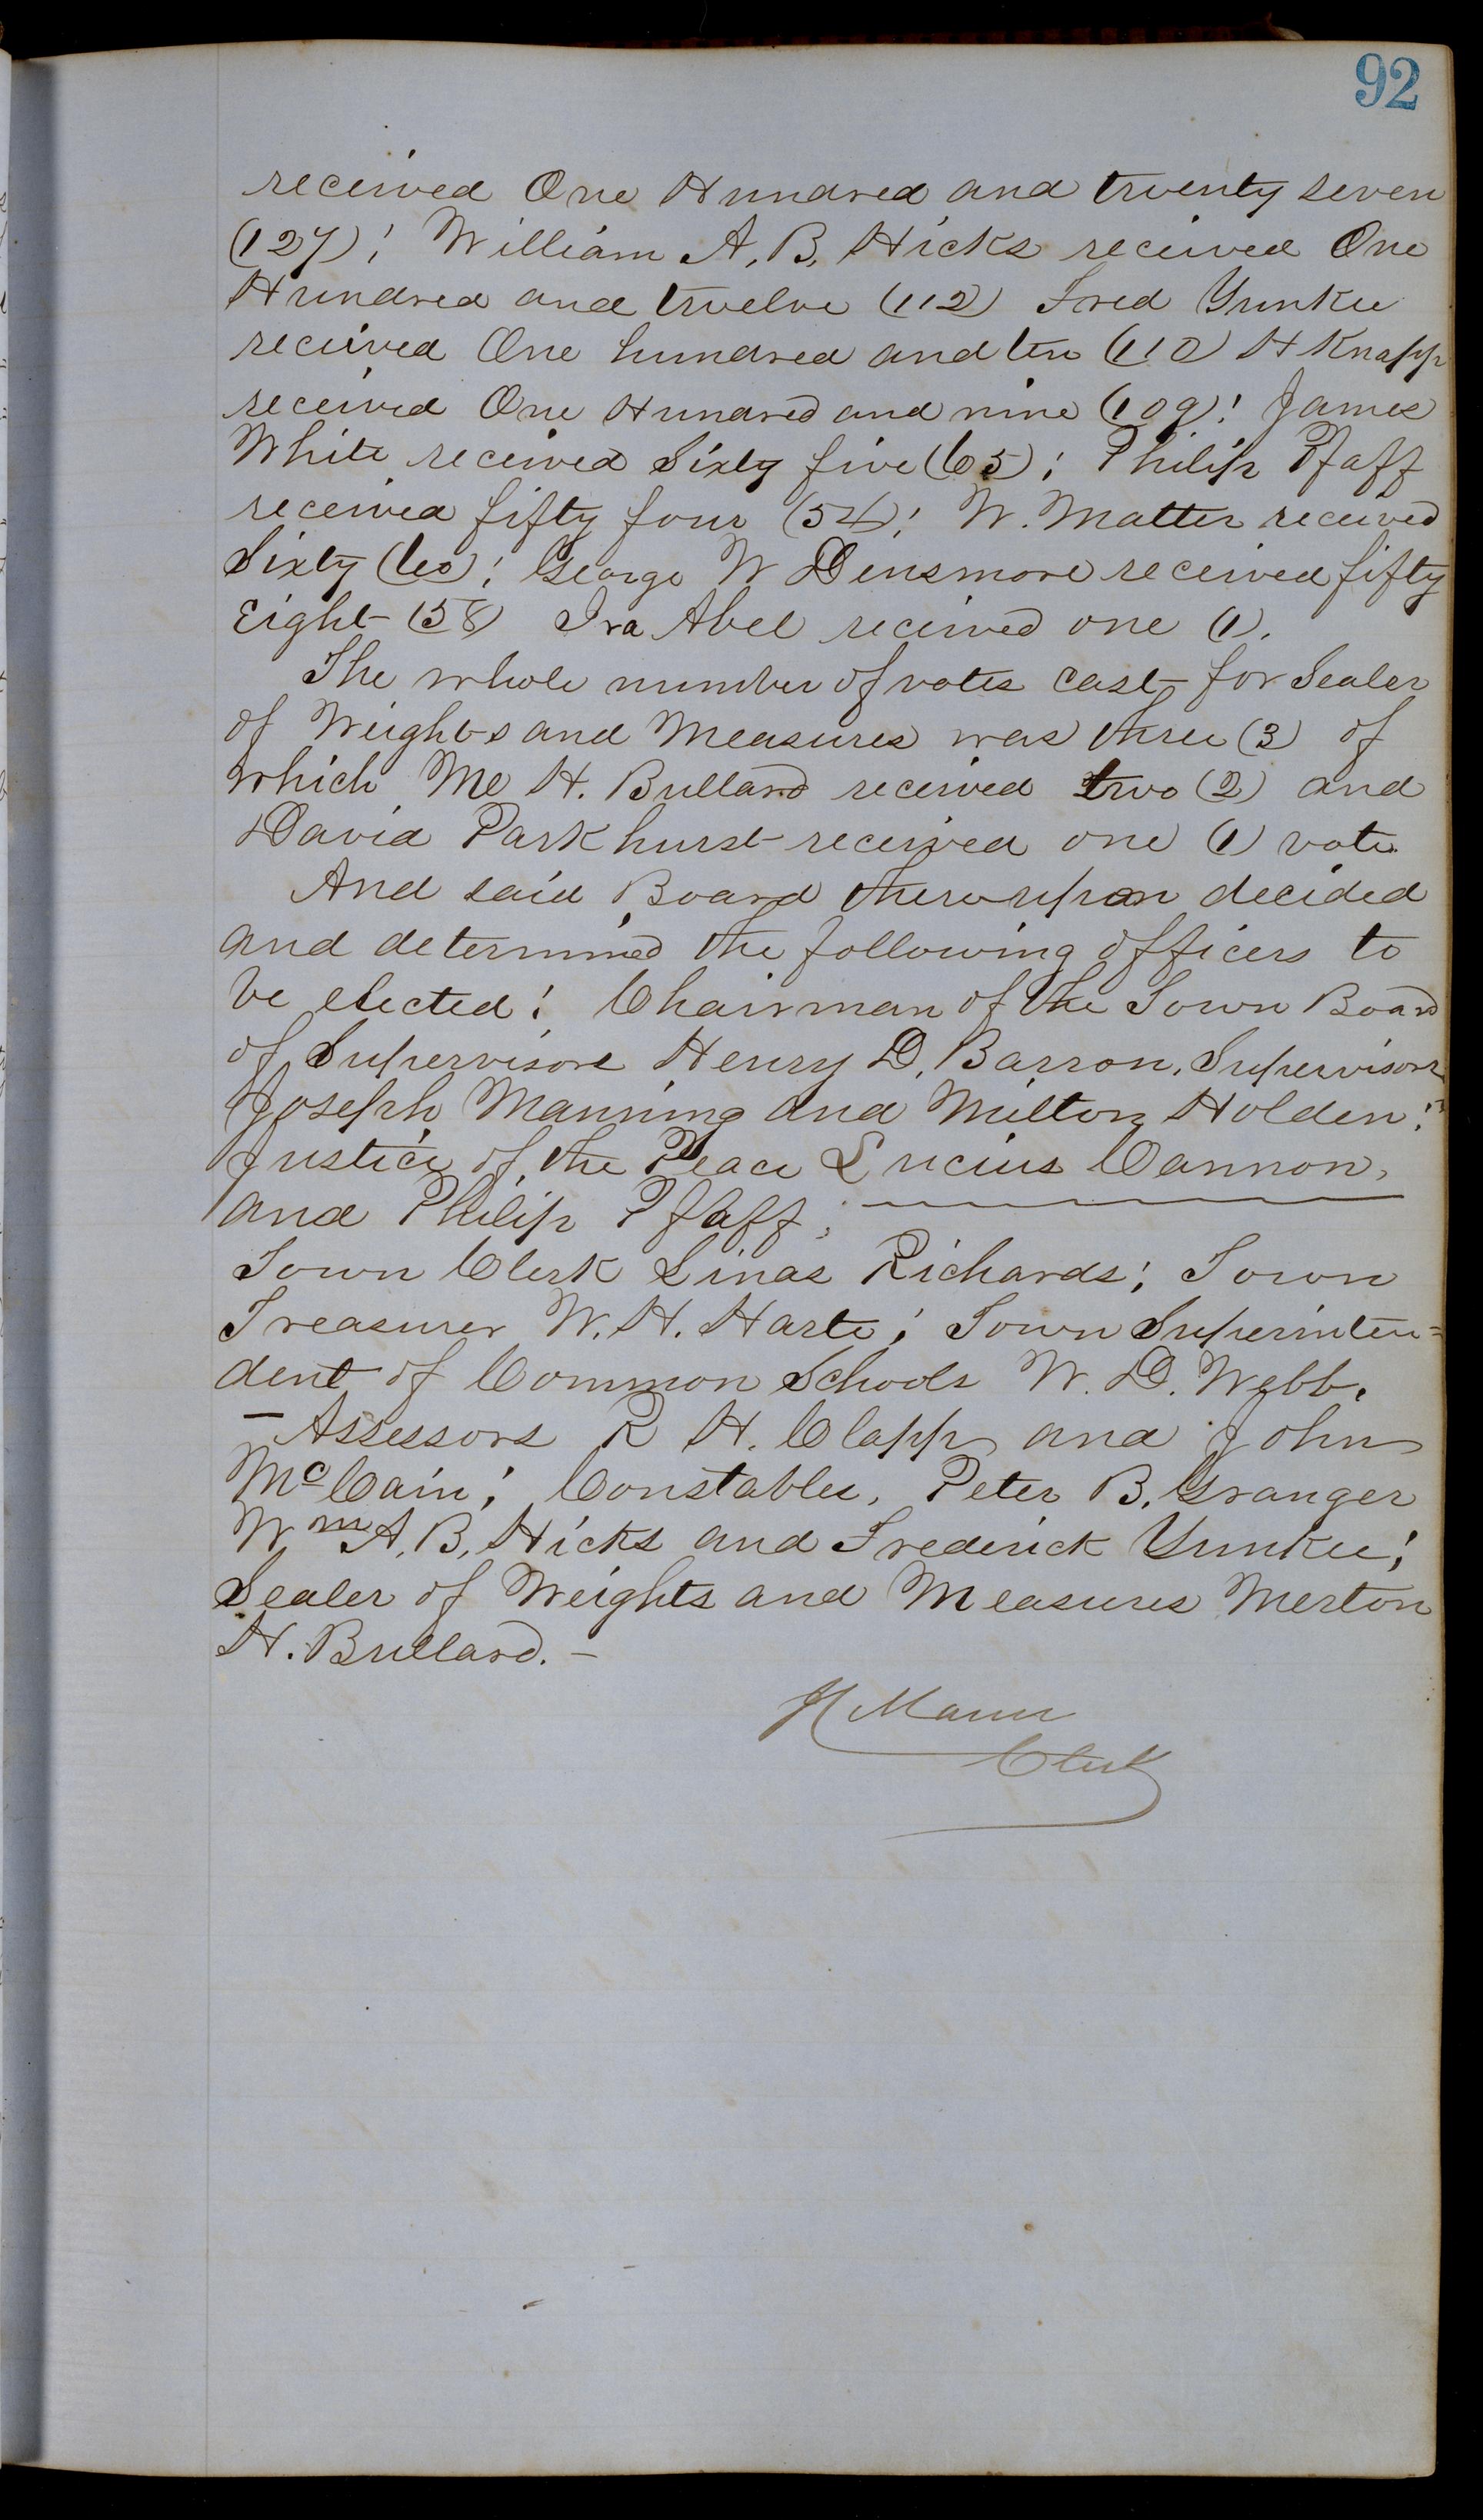 92
received One Hundred and twenty seven
(127); William A. B. Hicks received One
Hundred and twelve (112) Fred Yunkee
received One hundred and ten (110) H Knapp
received One Hundred and nine (109); James
White received Sixty five (65); Philip Pfaff
received fifty four (54); W. Matter received
Sixty (60); George W Densmore received fifty
Eight (58) Ira Abel received one (1).
The whole number of votes cast for Sealer
of Weights and Measures was three (3) of
which Me H. Bullard received two (2) and
David Parkhurst received one (1) vote
And said Board thereupon decided
and determined the following officers to
be elected; Chairman of the Town Board
of Supervisors Henry D. Barron, Supervisors
Joseph Manning and Milton Holden;
Justice of the Peace Lucius Cannon,
and Philip Pfaff;
Town Clerk Linas Richards; Town
Treasurer W. H. Harte; Town Superinten=
dent of Common Schools W. D. Webb.
— Assessors R H. Clapp and John
McCain; Constables, Peter B. Granger
Wm A. B. Hicks and Frederick Yunkee;
Sealer of Weights and Measures Merton
H. Bullard. —
Mann
Clerk